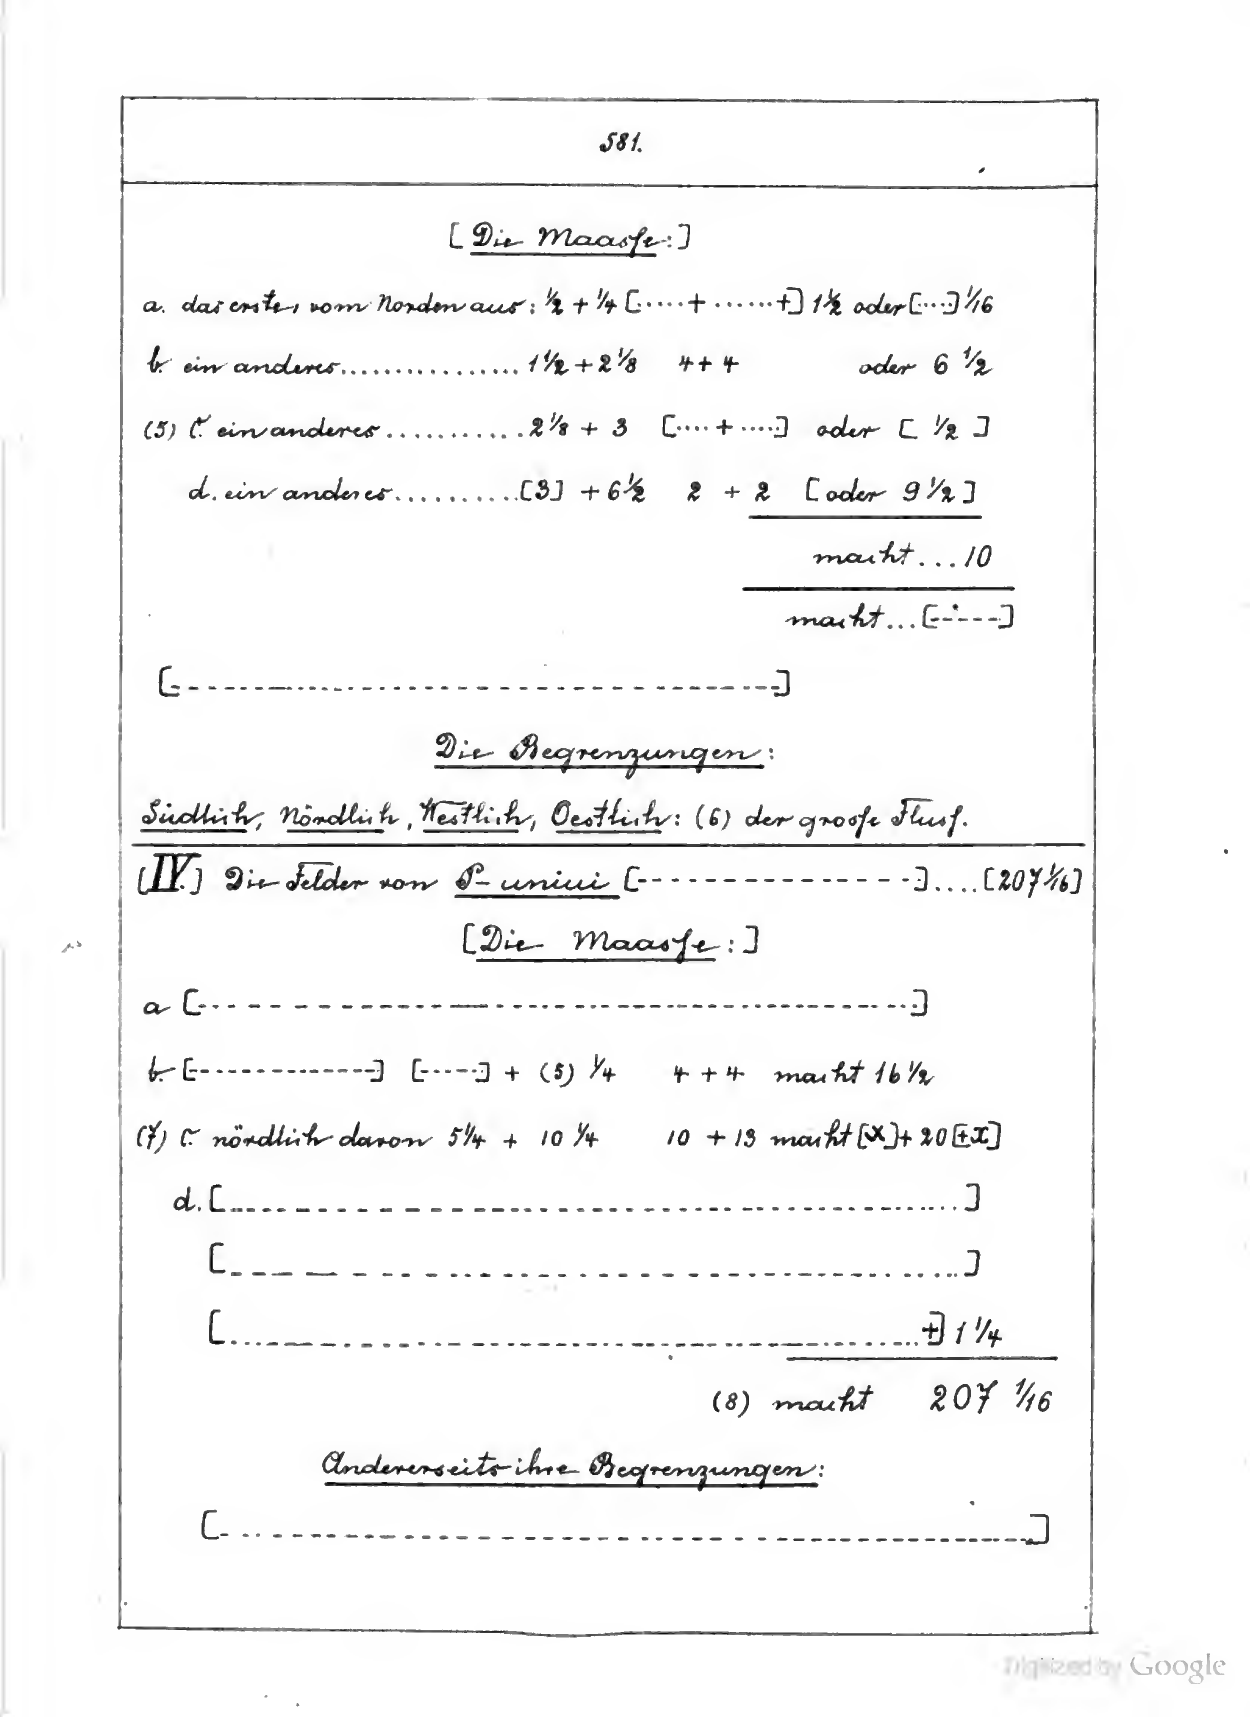 581.
[Die Maasse:]
a. das erste, vom Norden aus: ½ + ¼ [.....+......+] 1½ oder [...] 1/16
b. ein anderes................ 1½ + 2⅛ 4 + 4 oder 6 ½
(5) c. ein anderes........... 2⅛ + 3 [....+....] oder [ ½ ]
d. ein anderes..........[3] + 6½ 2 + 2 [oder 9 ½]
macht...10
macht...[-----]
[------------------------------]
Die Begrenzungen:
Südlich, Nördlich, Westlich, Oestlich: (6) der grosse Fluss.
[IV.] Die Felder von P-uniui [---------------]....[207 1/16]
[Die Maasse:]
a [------------------------------]
b. [---------------] [-----] + (5) ¼ 4 + 4 macht 16 ½
(7) c. nördlich davon 5¼ + 10 ¼ 10 + 13 macht [x] + 20 [+x]
d. [------------------------------]
[------------------------------]
[------------------------------+] 1 ¼
(8) macht 207 1/16
Andererseits ihre Begrenzungen:
[------------------------------]
Digitized by Google